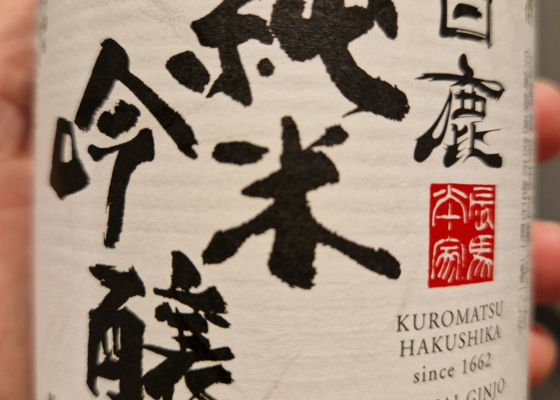 白鹿
純米
吟醸
辰馬
本家
KUROMATSU
HAKUSHIKA
since 1662
GINJO